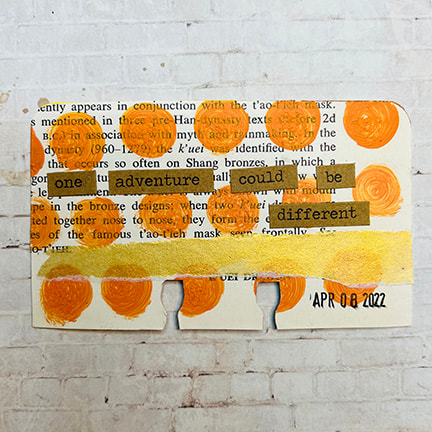 ently appears in conjunction with the t'ao-t'ieh mask.
s mentioned in three pre-Han-dynasty texts (before 2d
B.C.) in association with myth and rainmaking. In the
dynasty (960–1279) the k'uei was identified with the
that occurs so often on Shang bronzes, in which a
one adventure could be
with mouth
pe in the bronze designs; when two k'uei
ted together nose to nose, they form the
different
es of the famous t'ao-t'ieh mask seen frontally. See
O-T'IEH.
UEI DR
APR 08 2022